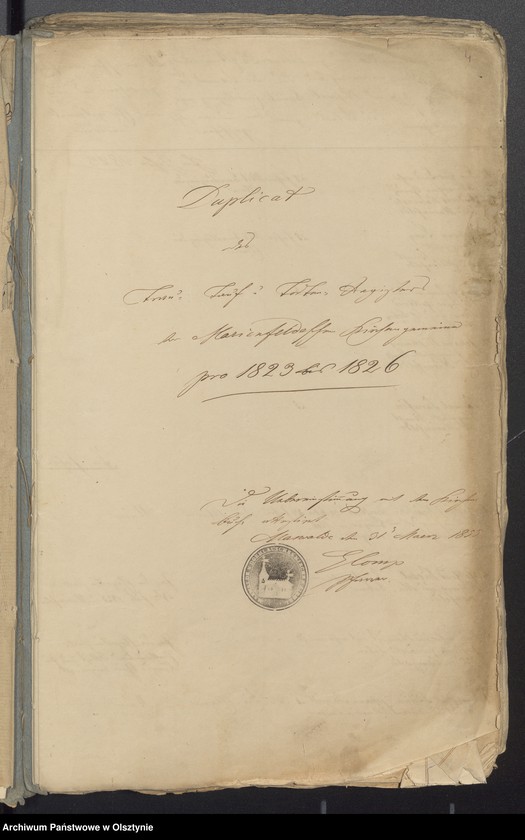 Duplicat
des
Trau- Tauf- u Todten-Registers
der Marienfeldschen Kirchengemeine
pro 1823 bis 1826
Die Uebereinstimmung mit dem Kirchen
buche attestirt
Marwalde den 31t Maerz
Pfarrer
Archiwum Państwowe w Olsztynie